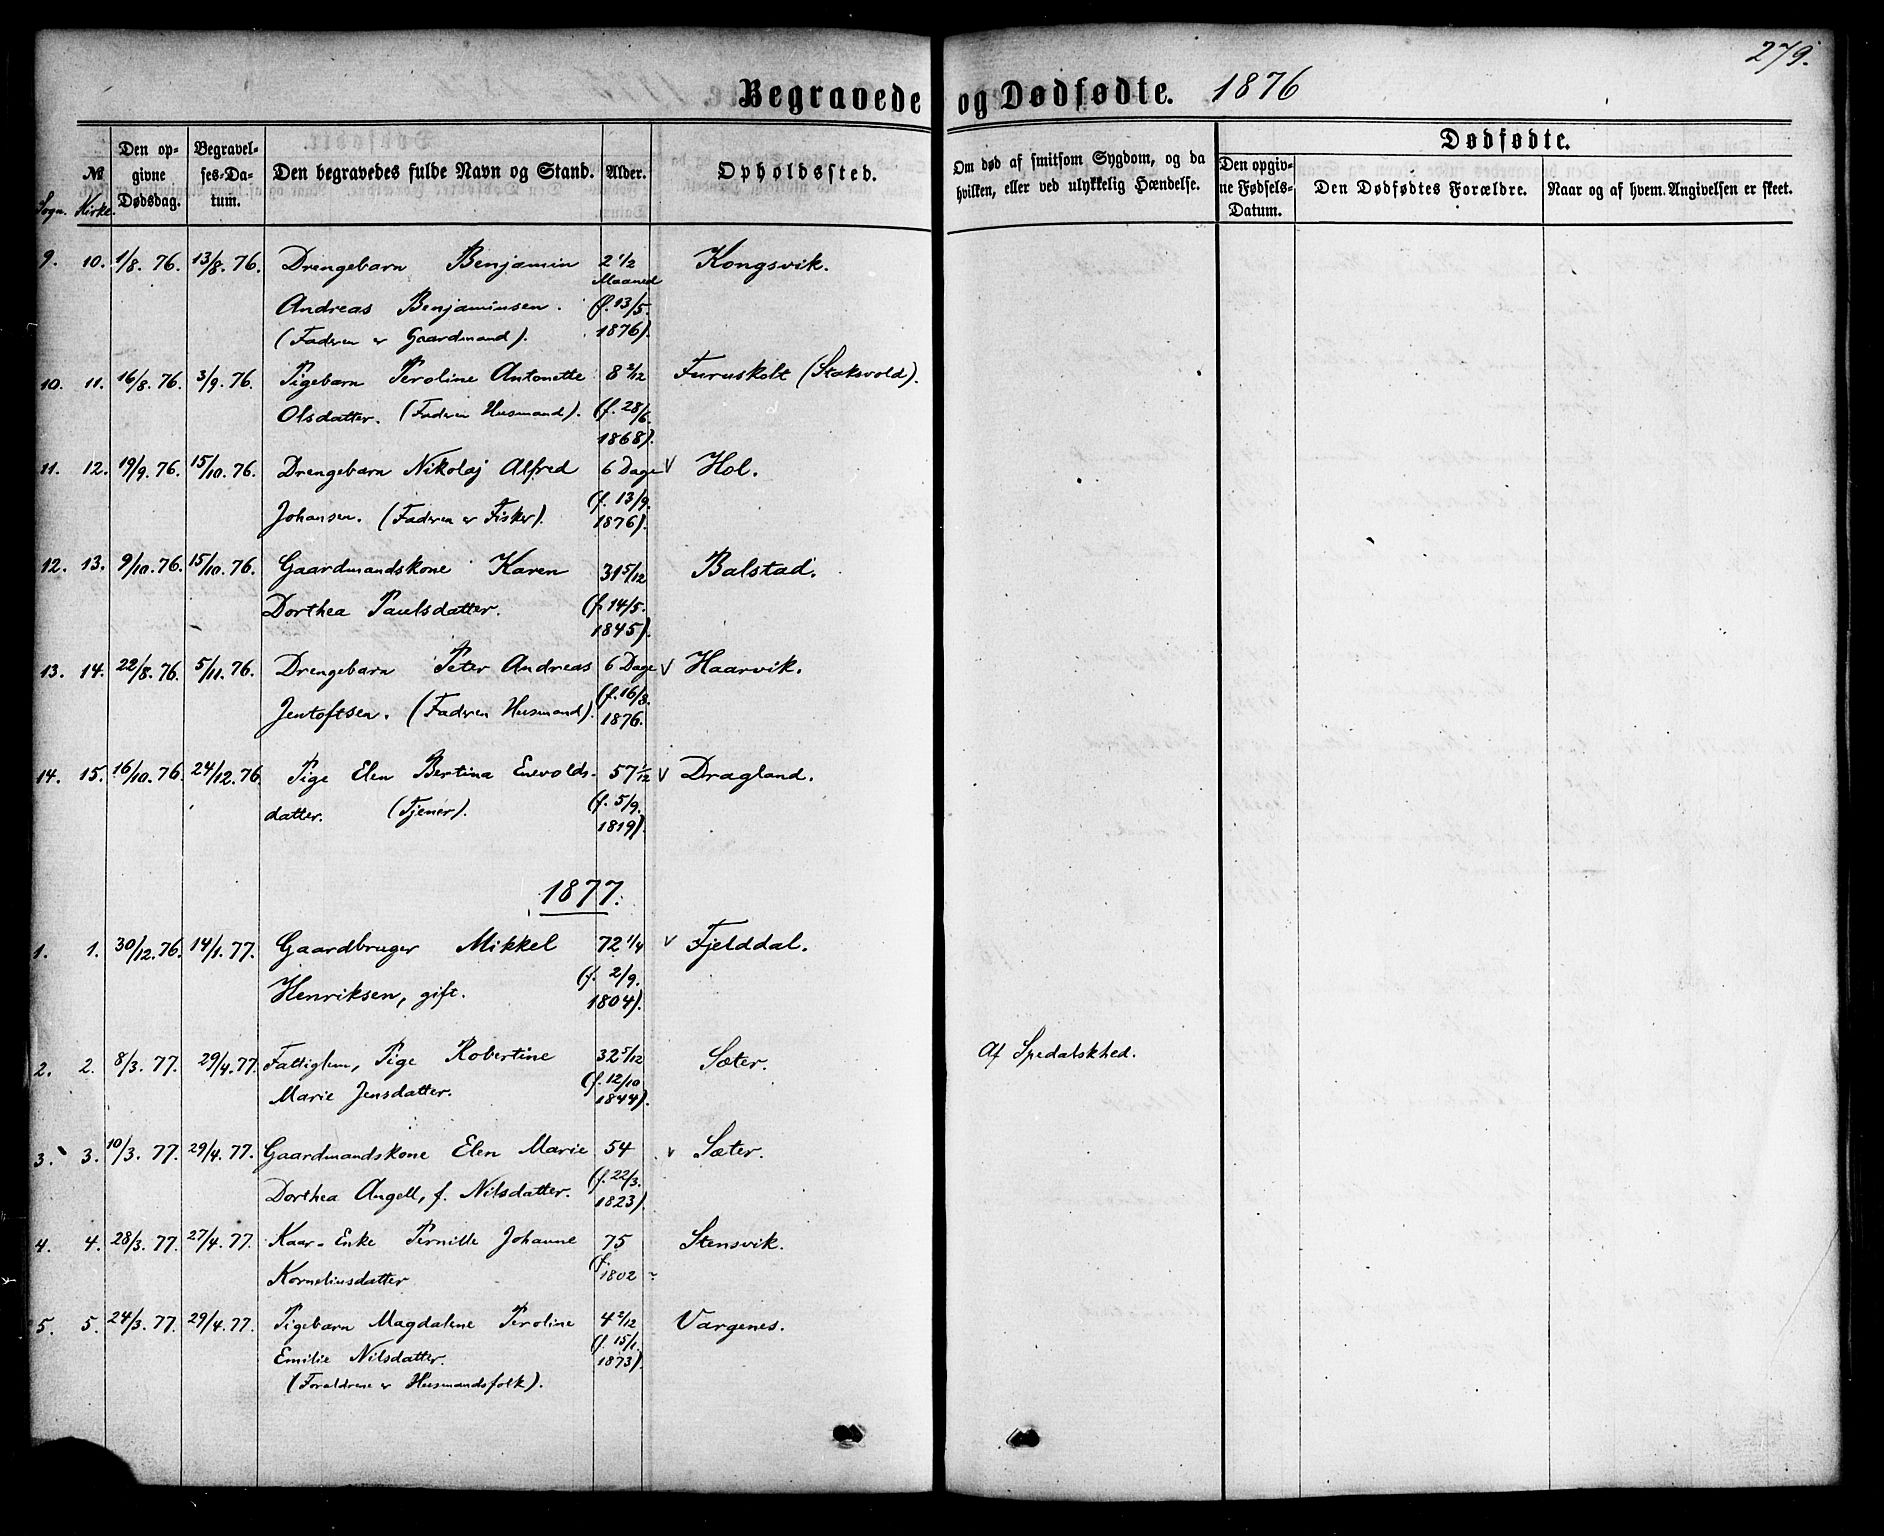 279.
Begravede og Dødfødte. 1876
Sogn. № Kirke.
Den opgivne Dødsdag.
Begravelses-Datum.
Den begravedes fulde Navn og Stand.
Alder.
Opholdssted.
Om død af smitsom Sygdom, og da hvilken, eller ved ulykkelig Hændelse.
Dødfødte.
Den opgivne Fødsels-Datum.
Den Dødfødtes Forældre.
Naar og af hvem Angivelsen er skeet.
9. 10. 1/8. 76. 13/8. 76. Drengebarn Benjamin 2 1/2 Maaned Kongsvik.
Andreas Benjaminsen. (f. 13/5.
(Faderen er Gaardmand). 1876).
10. 11. 16/8. 76. 3/9. 76. Pigebarn Peroline Antonette 8 2/12 Furuskolt (Stoksvold).
Olsdatter. (Faderen Husmand). (f. 28/6.
1868).
11. 12. 19/9. 76. 15/10. 76. Drengebarn Nikolaj Alfred 6 Dage v Hol.
Johansen. (Faderen er Fisker). (f. 13/9.
1876).
12. 13. 9/10. 76. 15/10. 76. Gaardmandskone Karen 31 5/12 Balstad.
Dorthea Paulsdatter. (f. 14/5.
1845).
13. 14. 22/8. 76. 5/11. 76. Drengebarn Peter Andreas 6 Dage v Haarvik.
Jentoftsen. (Faderen Husmand). (f. 16/8.
1876.
14. 15. 16/10. 76. 24/12. 76. Pige Elen Bertina Enevolds- 57 1/12 v Dragland.
datter. (Tjener). (f. 5/9.
1819).
1877.
1. 1. 30/12. 76. 14/1. 77. Gaardbruger Mikkel 72 1/4 v Fjelddal.
Henriksen, gift. (f. 2/9.
1804).
2. 2. 8/3. 77. 29/4. 77. Fattiglem, Pige Robertine 32 5/12 Sæter. Af Spedalskhed.
Marie Jensdatter. (f. 12/10
1844).
3. 3. 10/3. 77. 29/4. 77. Gaardmandskone Elen Marie 54 v Sæter.
Dorthea Angell, f. Nilsdatter. (f. 22/3.
1823).
4. 4. 28/3. 77. 27/4. 77. Kaar-Enke Pernille Johanne 75 Stensvik.
Korneliusdatter (f. 1802
5. 5. 24/3. 77. 29/4. 77. Pigebarn Magdalene Peroline 4 2/12 Vargenes.
Emilie Nilsdatter. (f. 15/1.
1873).
(Forældrene er Husmandsfolk).